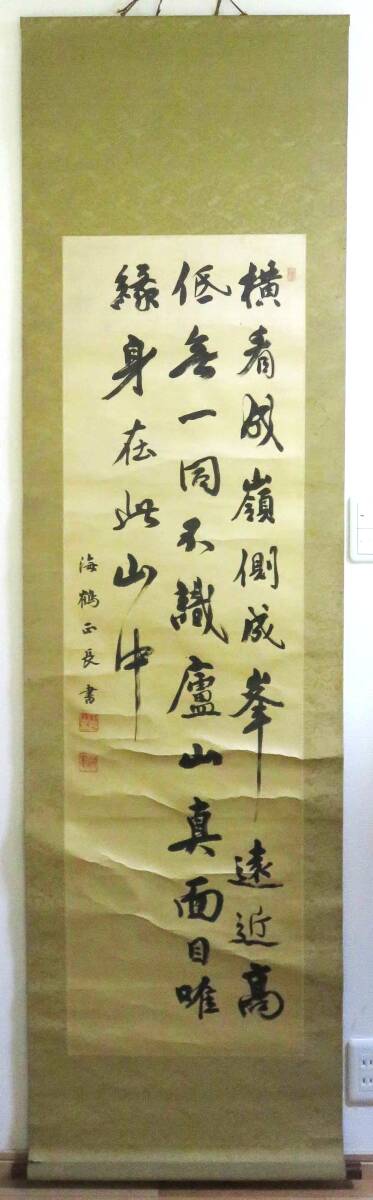 横看成嶺側成峯遠近高
低無一同不識廬山真面目唯
縁身在此山中
海鶴正長書